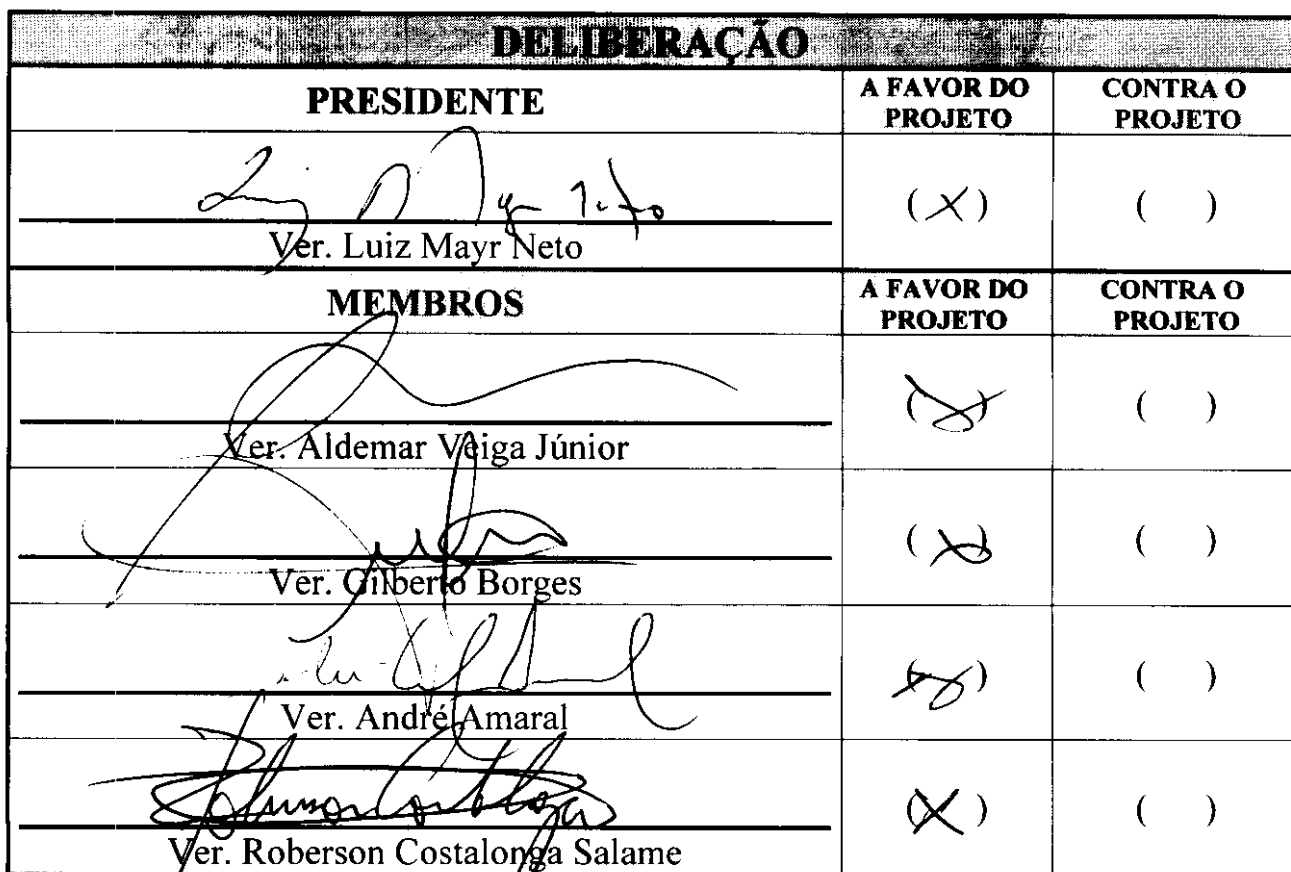 DELIBERAÇÃO
PRESIDENTE
A FAVOR DO PROJETO
CONTRA O PROJETO
(X)
( )
Ver. Luiz Mayr Neto
MEMBROS
A FAVOR DO PROJETO
CONTRA O PROJETO
(X)
( )
Ver. Aldemar Veiga Júnior
(X)
( )
Ver. Gilberto Borges
(X)
( )
Ver. André Amaral
(X)
( )
Ver. Roberson Costalonga Salame